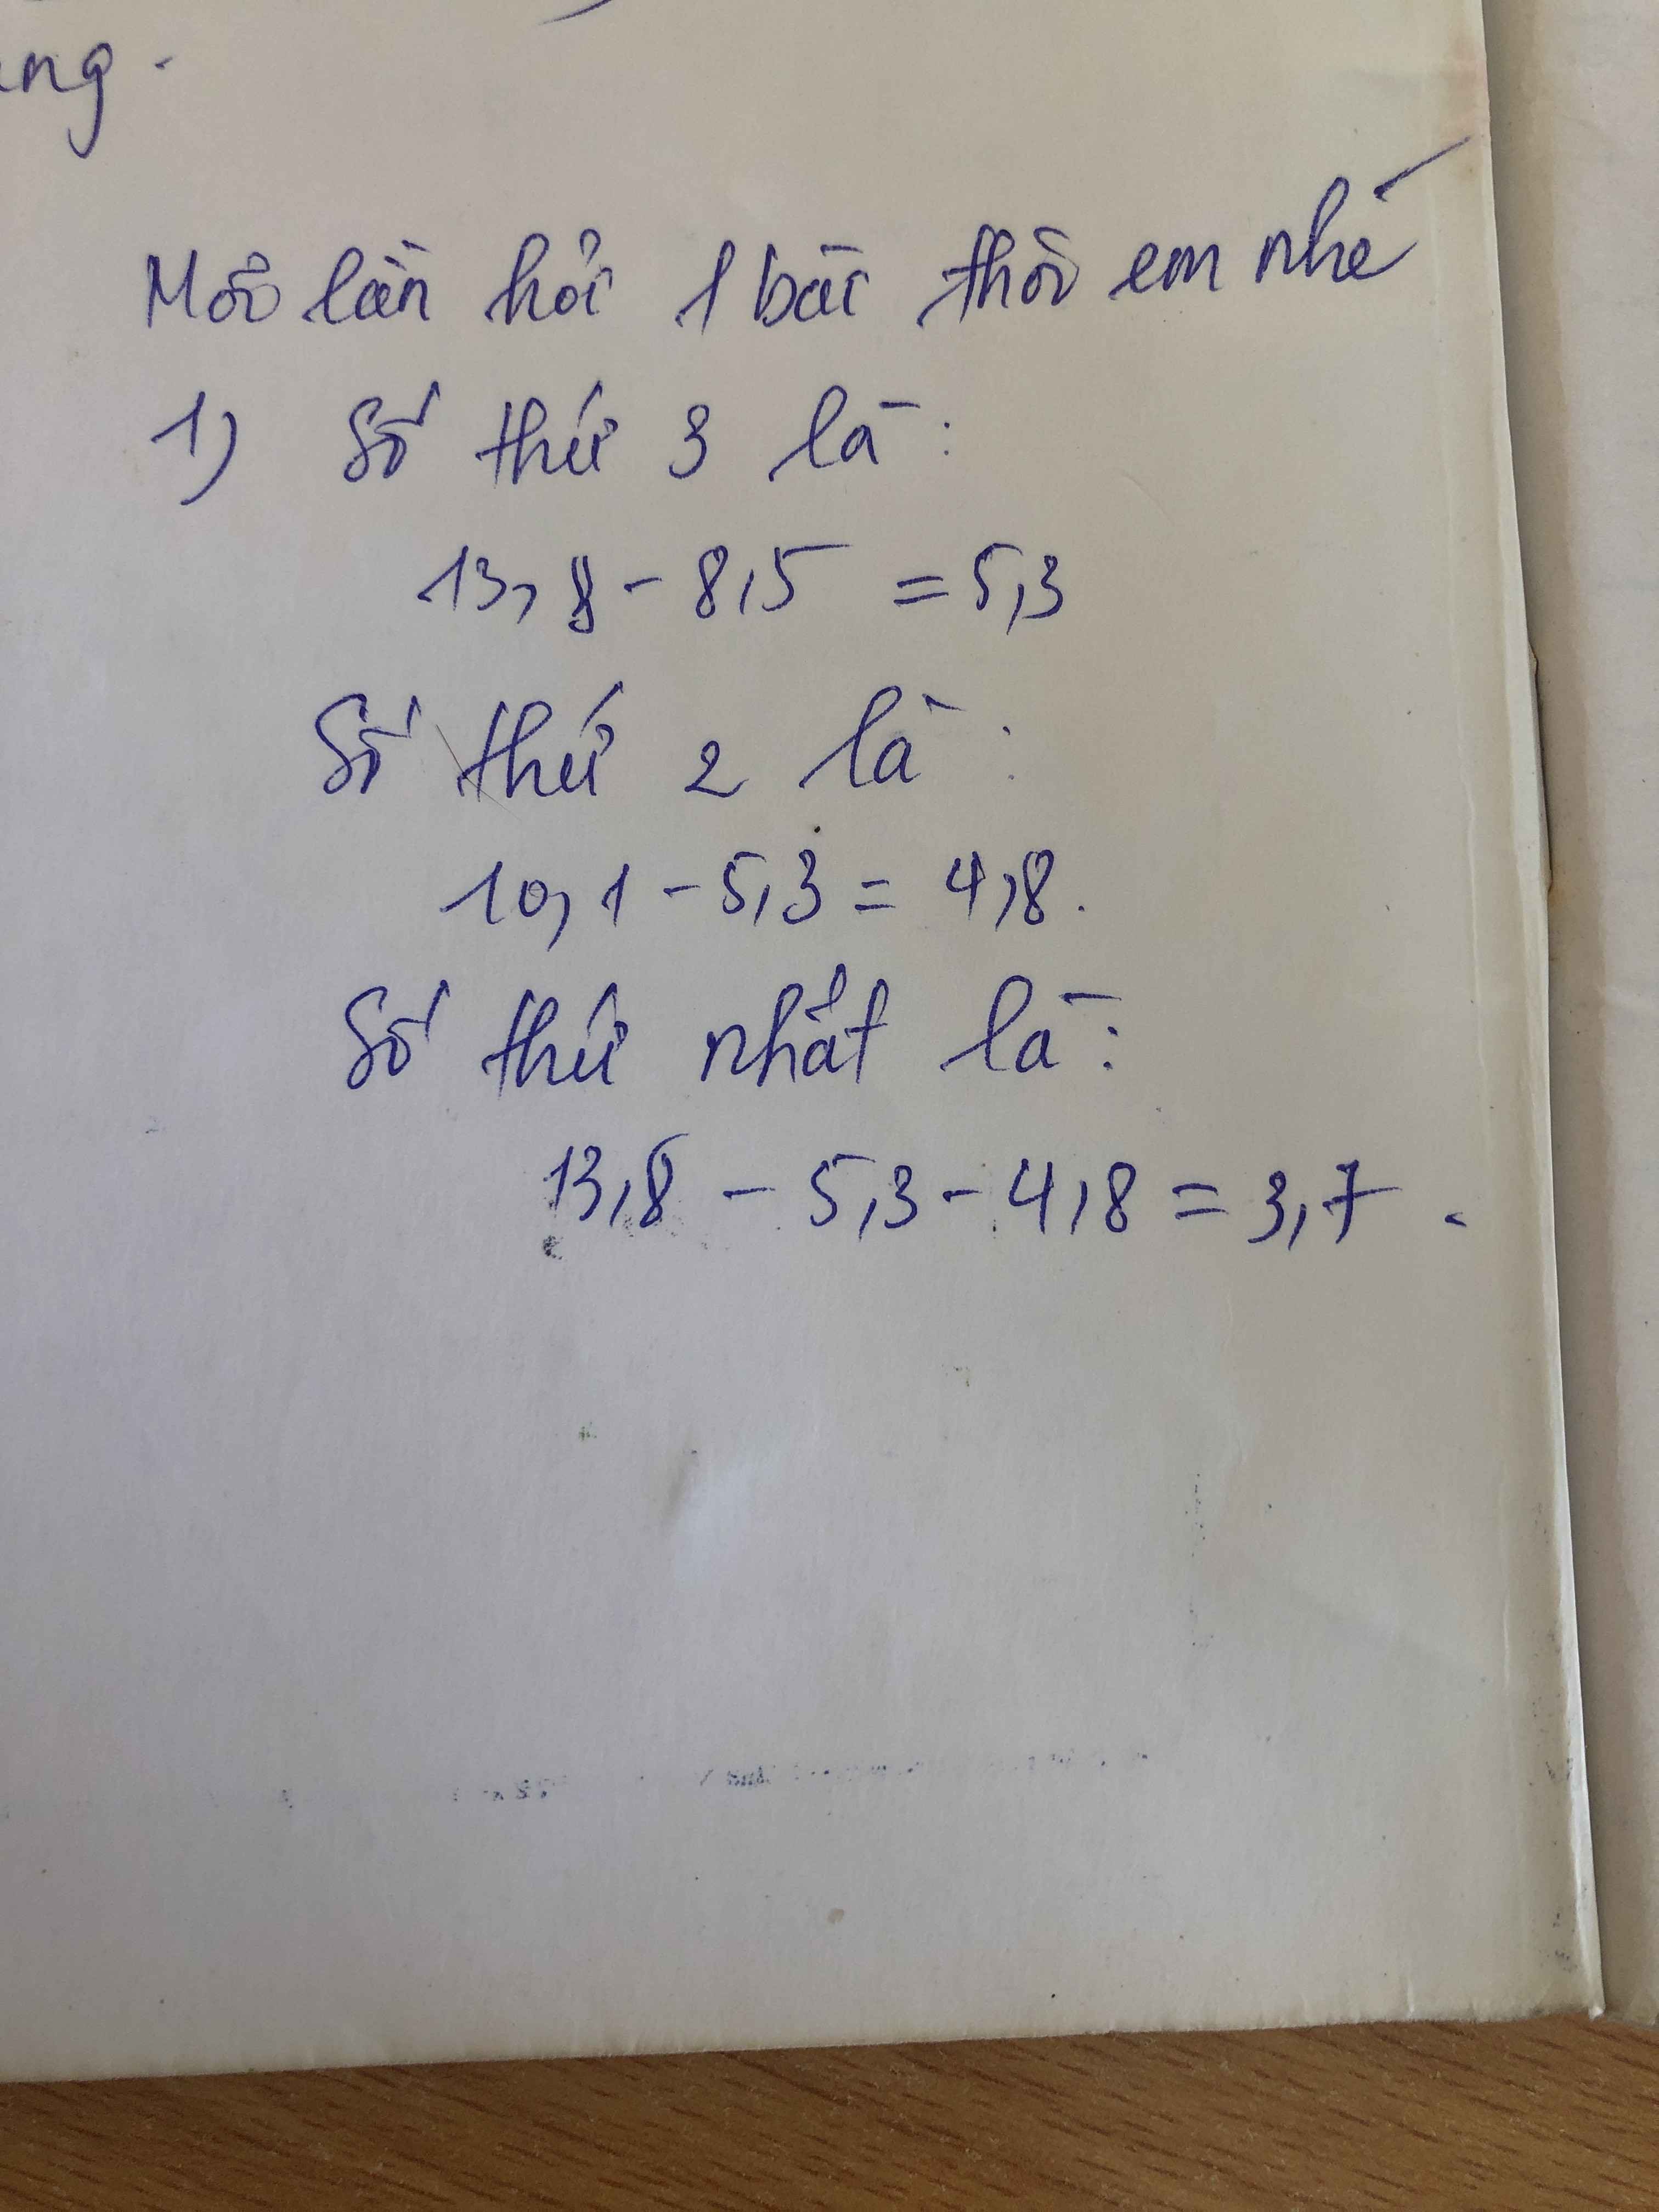 Mỗi lần hỏi 1 bài thôi em nhé
1) Số thứ 3 là:
13,8 - 8,5 = 5,3
Số thứ 2 là:
10,1 - 5,3 = 4,8.
Số thứ nhất là:
13,8 - 5,3 - 4,8 = 3,7.